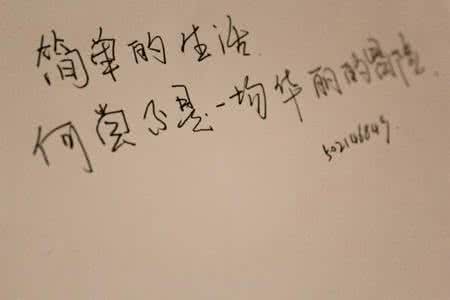 简单的生活
何尝不是一均华丽的冒险.
502146845